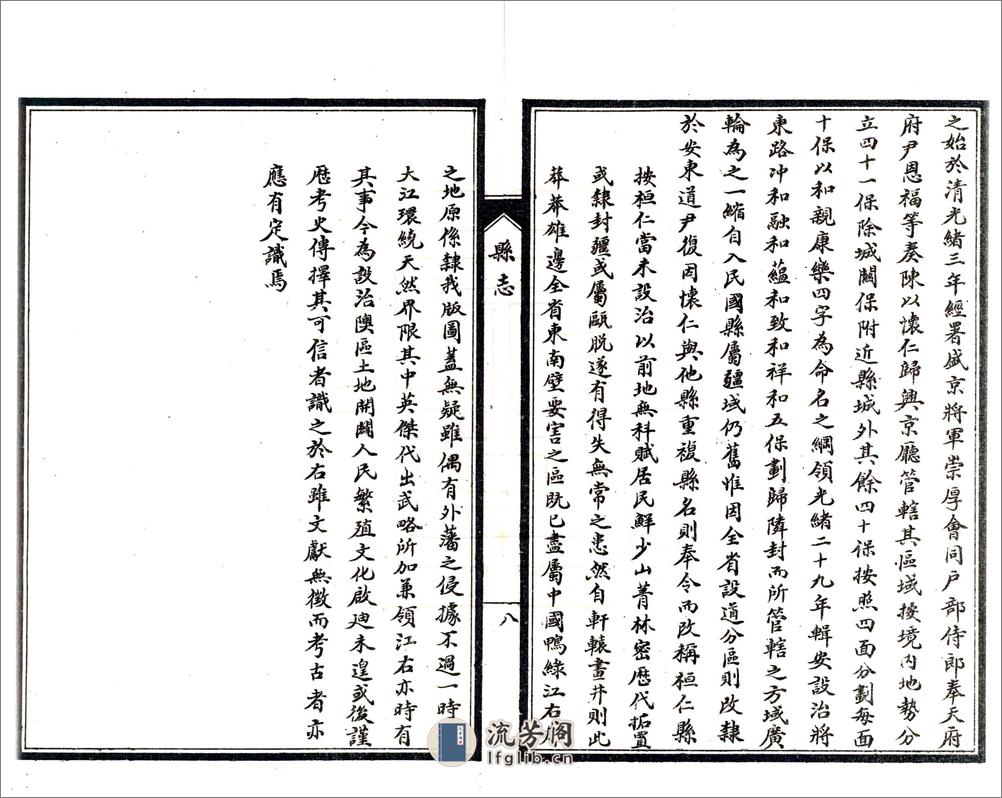 之始於清光緒三年經署盛京將軍崇厚會同戶部侍郎奉天府
府尹恩福等奏陳以懷仁歸興京廳管轄其區域擾境內地勢分
立四十一保除城關保附近縣城外其餘四十保按照四面分劃每面
十保以和親康樂四字為命名之綱領光緒二十九年輯安設治將
東路冲和融和蘊和致和祥和五保劃歸隣封而所管轄之方域廣
輪為之一縮自入民國縣屬疆域仍舊惟因全省設道分區則改隸
於安東道尹復因懷仁與他縣重複縣名則奉令而改稱桓仁縣
按桓仁當未設治以前地無科賦居民鮮少山菁林密歷代拓置
或隸封疆或屬甌脫遂有得失無常之患然自軒轅畫井則此
莽莽雄邊全省東南壁要害之區既已盡屬中國鴨綠江右
縣志
八
之地原係隸我版圖蓋無疑雖偶有外藩之侵據不過一時
大江環繞天然界限其中英傑代出武略所加兼領江右亦時有
其事今為設治隩區土地開闢人民繁殖文化啟廸未遑或後謹
歷考史傳擇其可信者識之於右雖文獻無徵而考古者亦
應有定識焉
流芳閣
lfglib.cn